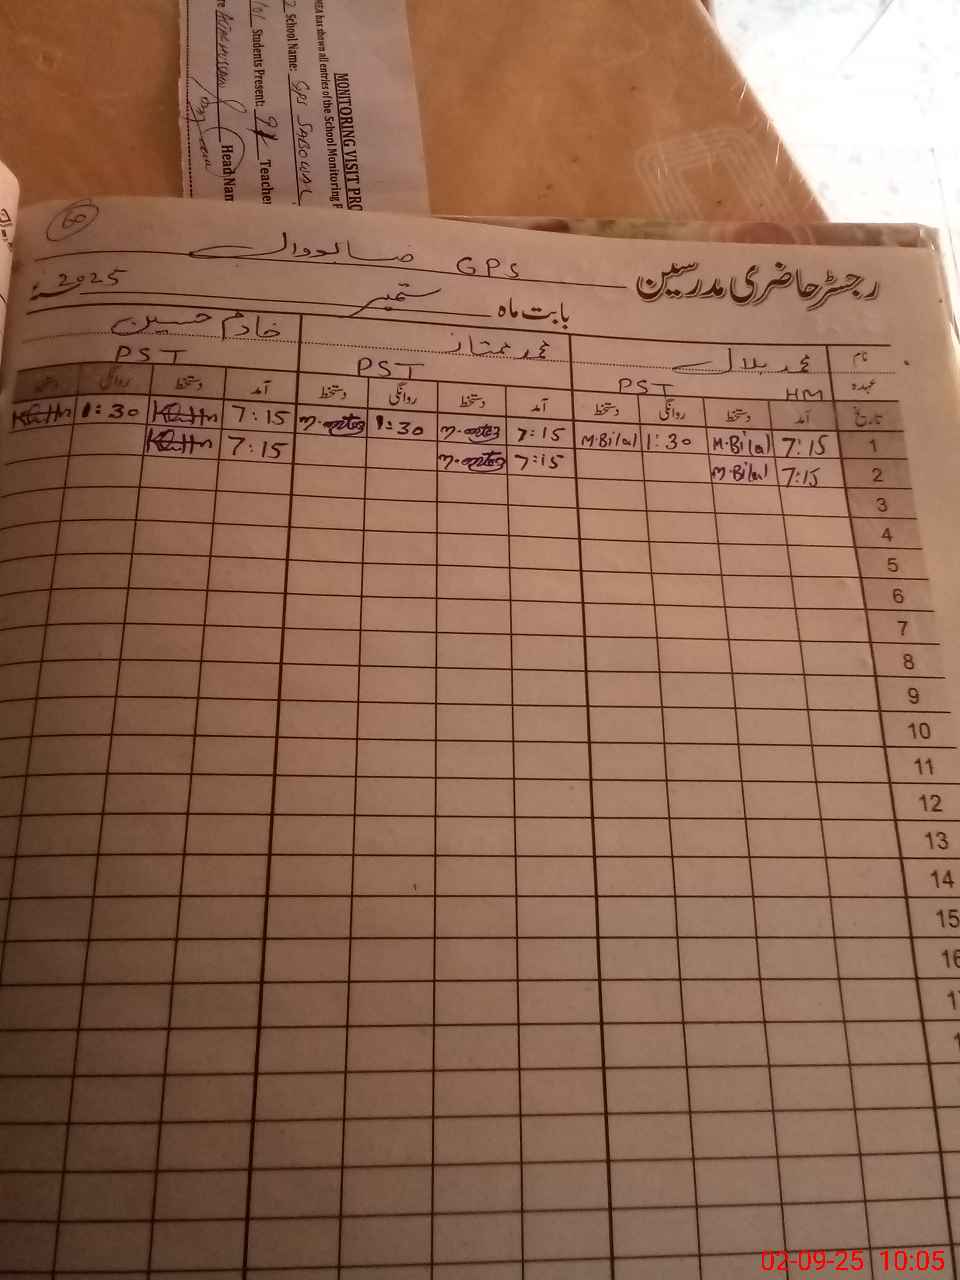 MONITORING VISIT PRO
MEA has shown all entries of the School Monitoring F
2 School Name: GPS SABOWAL
101 Students Present: 91 Teache
Head Nam
60
GPS صابووال
رجسٹر حاضری مدرسین
بابت ماہ ستمبر 2025
نام محمد بلال محمد ممتاز خادم حسین
عہدہ HM PST PST PST
تاریخ آمد دستخط روانگی دستخط آمد دستخط روانگی دستخط آمد دستخط روانگی دستخط
1 7:15 M.Bilal 1:30 M.Bilal 7:15 1:30 7:15 1:30
2 7:15 M.Bilal 7:15 7:15
3
4
5
6
7
8
9
10
11
12
13
14
15
16
02-09-25 10:05